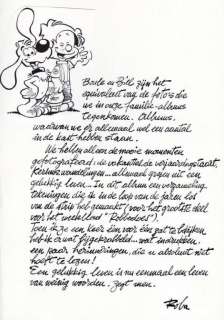 Boule en Bill zijn het
equivalent van de foto's die
we in onze familie-albums
tegenkomen. Albums,
waarvan we er allemaal wel een aantal
in de kast hebben staan.
We hebben alleen de mooie momenten
gefotografeerd: de vakantie, de verjaardagstaart,
kerstmis, wandelingen... allemaal grepen uit een
gelukkig leven. In dit album een verzameling
tekeningen die ik in de loop van de jaren los
van de strip heb gemaakt (voor het grootste deel
voor het weekblad "Robbedoes").
Toen ik ze een keer één voor één zat te bekijken
heb ik er wat bijgekrabbeld... wat indrukken,
een paar herinneringen, die u absoluut niet
hoeft te lezen!
Een gelukkig leven is nu eenmaal een leven
van weinig woorden, zegt men.
Roba